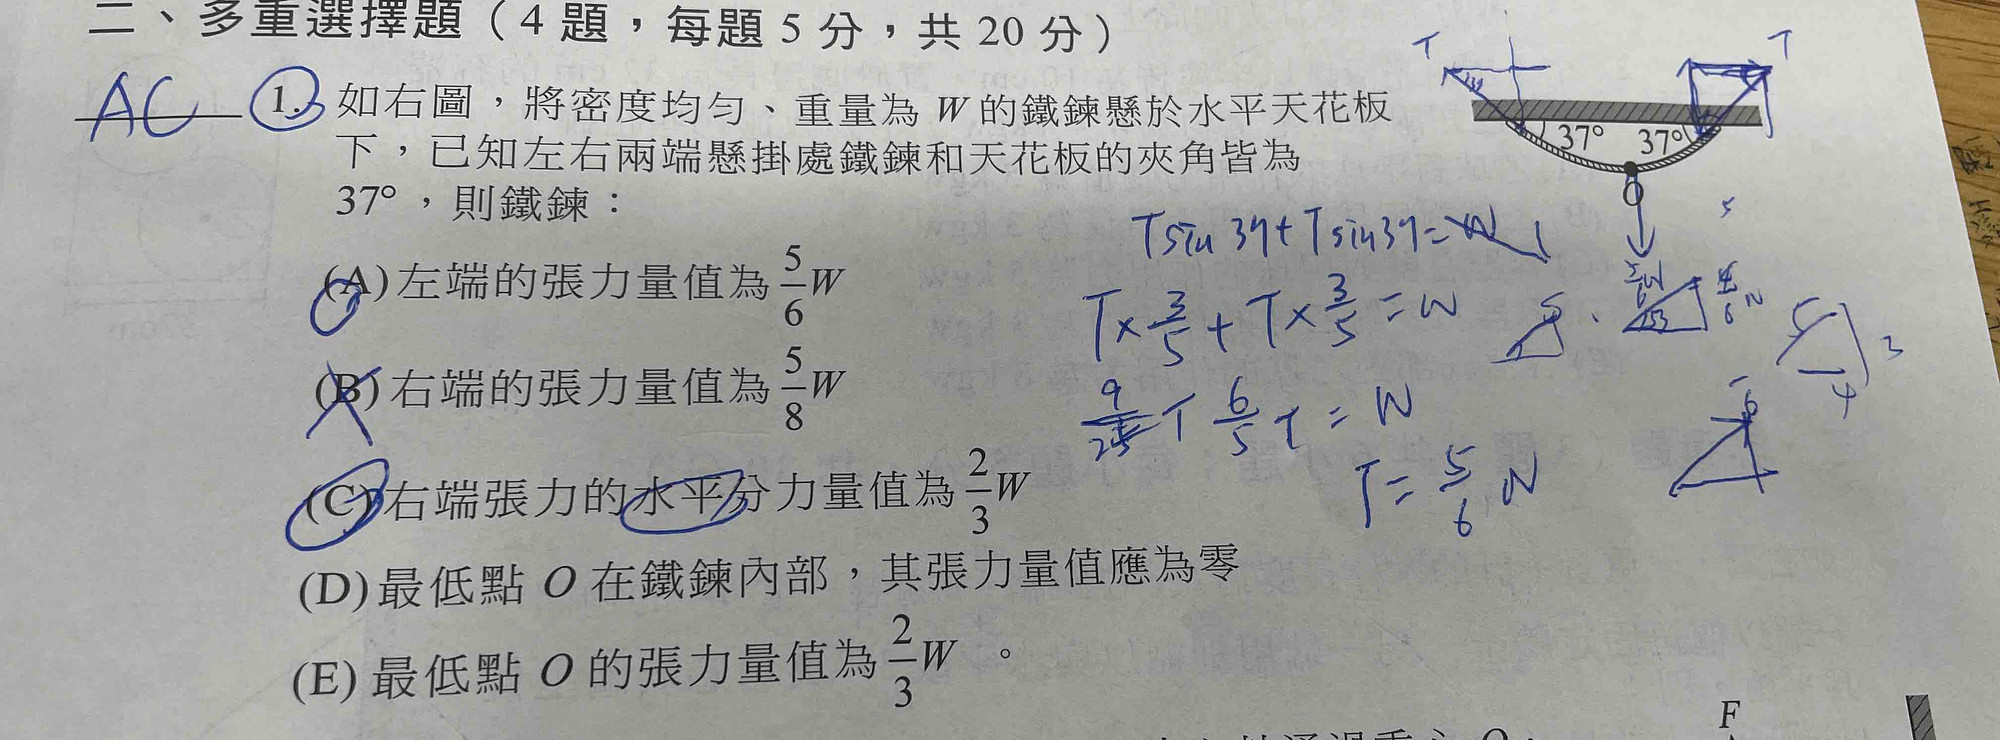 二、多重選擇題（4 題，每題 5 分，共 20 分）
AC 1. 如右圖，將密度均勻、重量為 W 的鐵鍊懸於水平天花板
下，已知左右兩端懸掛處鐵鍊和天花板的夾角皆為
37°，則鐵鍊：
(A) 左端的張力量值為 5/6 W
(B) 右端的張力量值為 5/8 W
(C) 右端張力的水平分力量值為 2/3 W
(D) 最低點 O 在鐵鍊內部，其張力量值應為零
(E) 最低點 O 的張力量值為 2/3 W 。
T T
37° 37°
O
T sin 37 + T sin 37 = W
T × 3/5 + T × 3/5 = W
6/5 T = W
T = 5/6 W
5 3 4
F